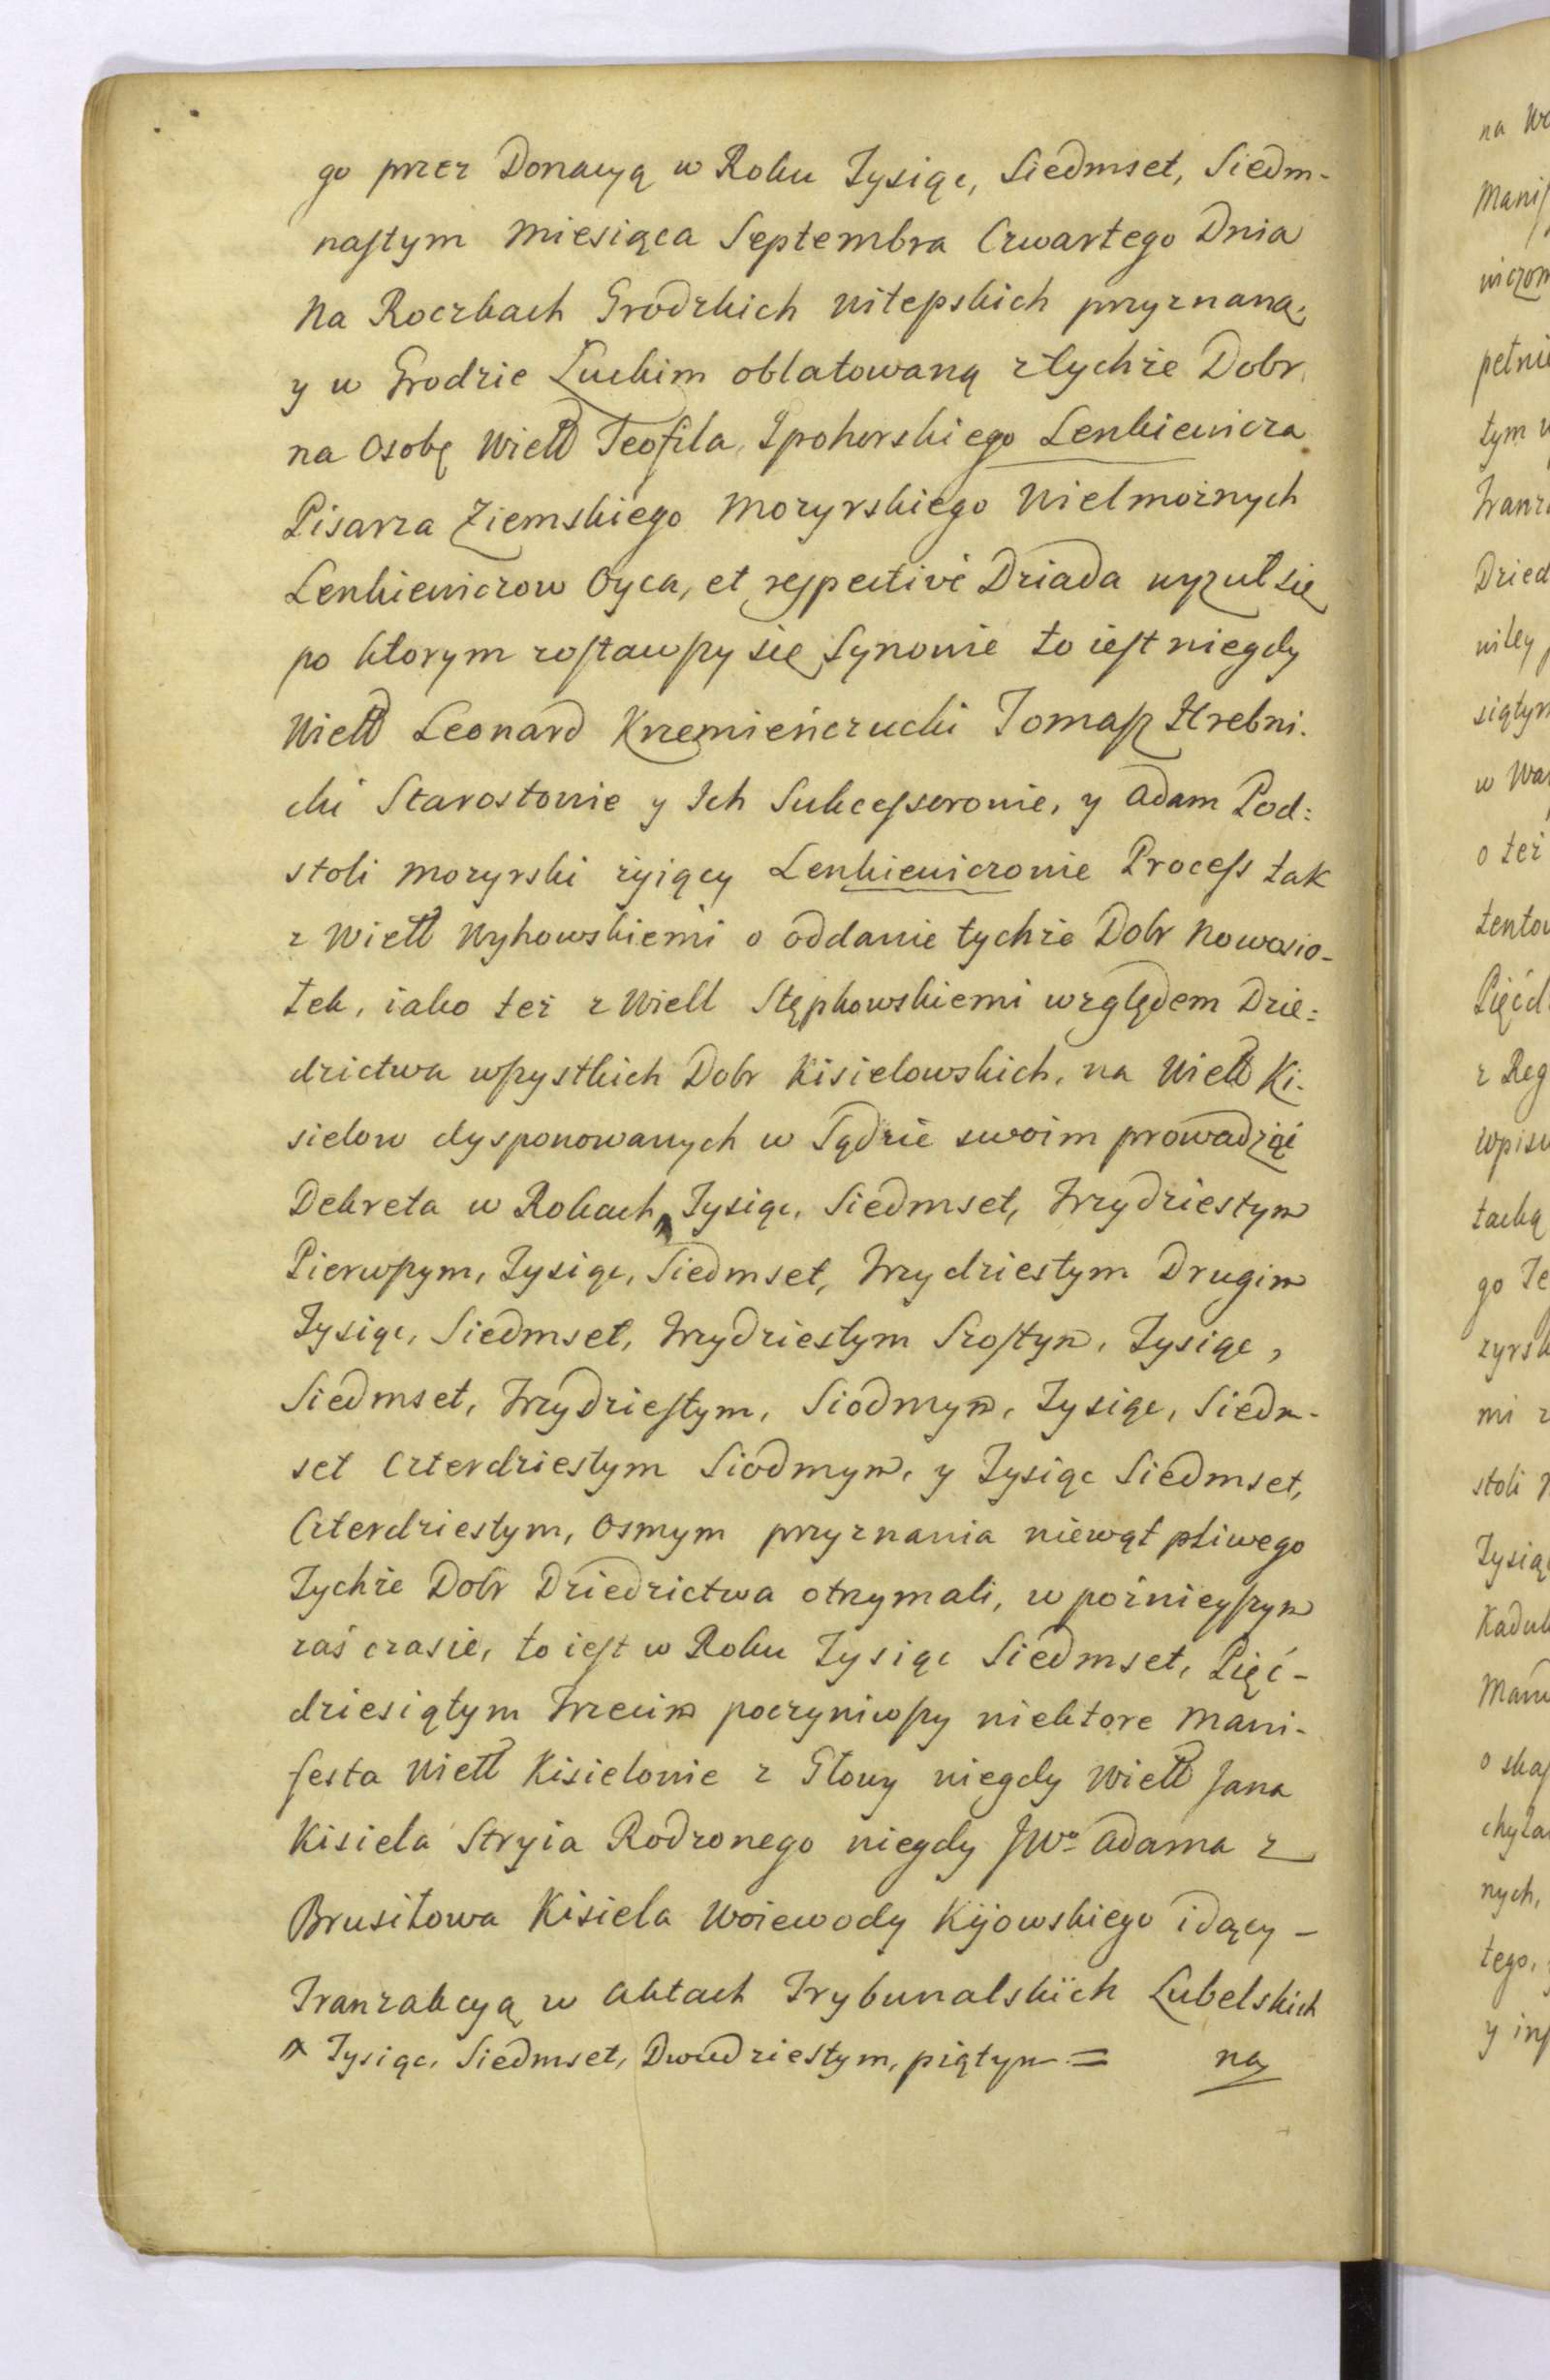 go przez Donacyą w Roku Tysiąc, Siedmset, Siedm-
nastym Miesiąca Septembra Czwartego Dnia
Na Roczkach Grodzkich witepskich przyznaną,
y w Grodzie Łuckim oblatowaną ztychże Dobr
na Osobę Wiell Teofila, Ipohorskiego Lenkiewicza
Pisarza Ziemskiego Mozyrskiego Wielmożnych
Lenkiewiczow Oyca, et respective Dziada wyzuł się
po ktorym zostawszy się Synowie to iest niegdy
Wiell Leonard Krzemieńczucki Tomasz Hrebni-
cki Starostowie y Ich Sukcessorowie, y Adam Pod:
stoli Mozyrski żyiący Lenkiewiczowie Process tak
z Wiell Wyhowskiemi o oddanie tychże Dobr Nowosio-
łek, iako też z Wiell Stępkowskiemi względem Dzie:
dzictwa wszystkich Dobr Kisielowskich, na Wiell Ki-
sielow dysponowanych w Sądzie swoim prowadząć
Dekreta w Rokach, ^ Tysiąc, Siedmset, Trzydziestym
Pierwszym, Tysiąc, Siedmset, Trzydziestym Drugim
Tysiąc, Siedmset, Trzydziestym Szostym, Tysiąc,
Siedmset, Trzydziestym, Siodmym, Tysiąc, Siedm-
set Czterdziestym Siodmym, y Tysiąc Siedmset,
Czterdziestym, Osmym przyznania niewątpliwego
Tychże Dobr Dziedzictwa otrzymali, w poźnieyszym
zaś czasie, to iest w Roku Tysiąc Siedmset, Pięć-
dziesiątym Trzecim poczyniwszy niektore Mani-
festa Wiell Kisielowie z Głowy niegdy Wiell Jana
Kisiela Stryia Rodzonego niegdy JWo Adama z
Brusiłowa Kisiela Woiewody Kijowskiego idący -
Tranzakcyą w Aktach Trybunalskich Lubelskich
^ Tysiąc, Siedmset, Dwudziestym, piątym = na